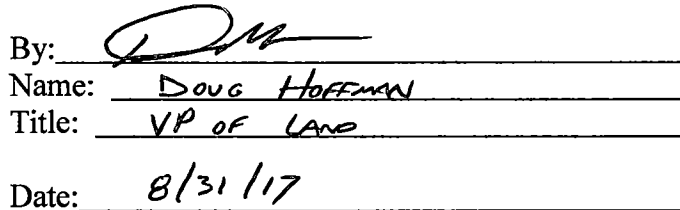 By:
Name: Doug Hoffman
Title: VP of Land
Date: 8/31/17